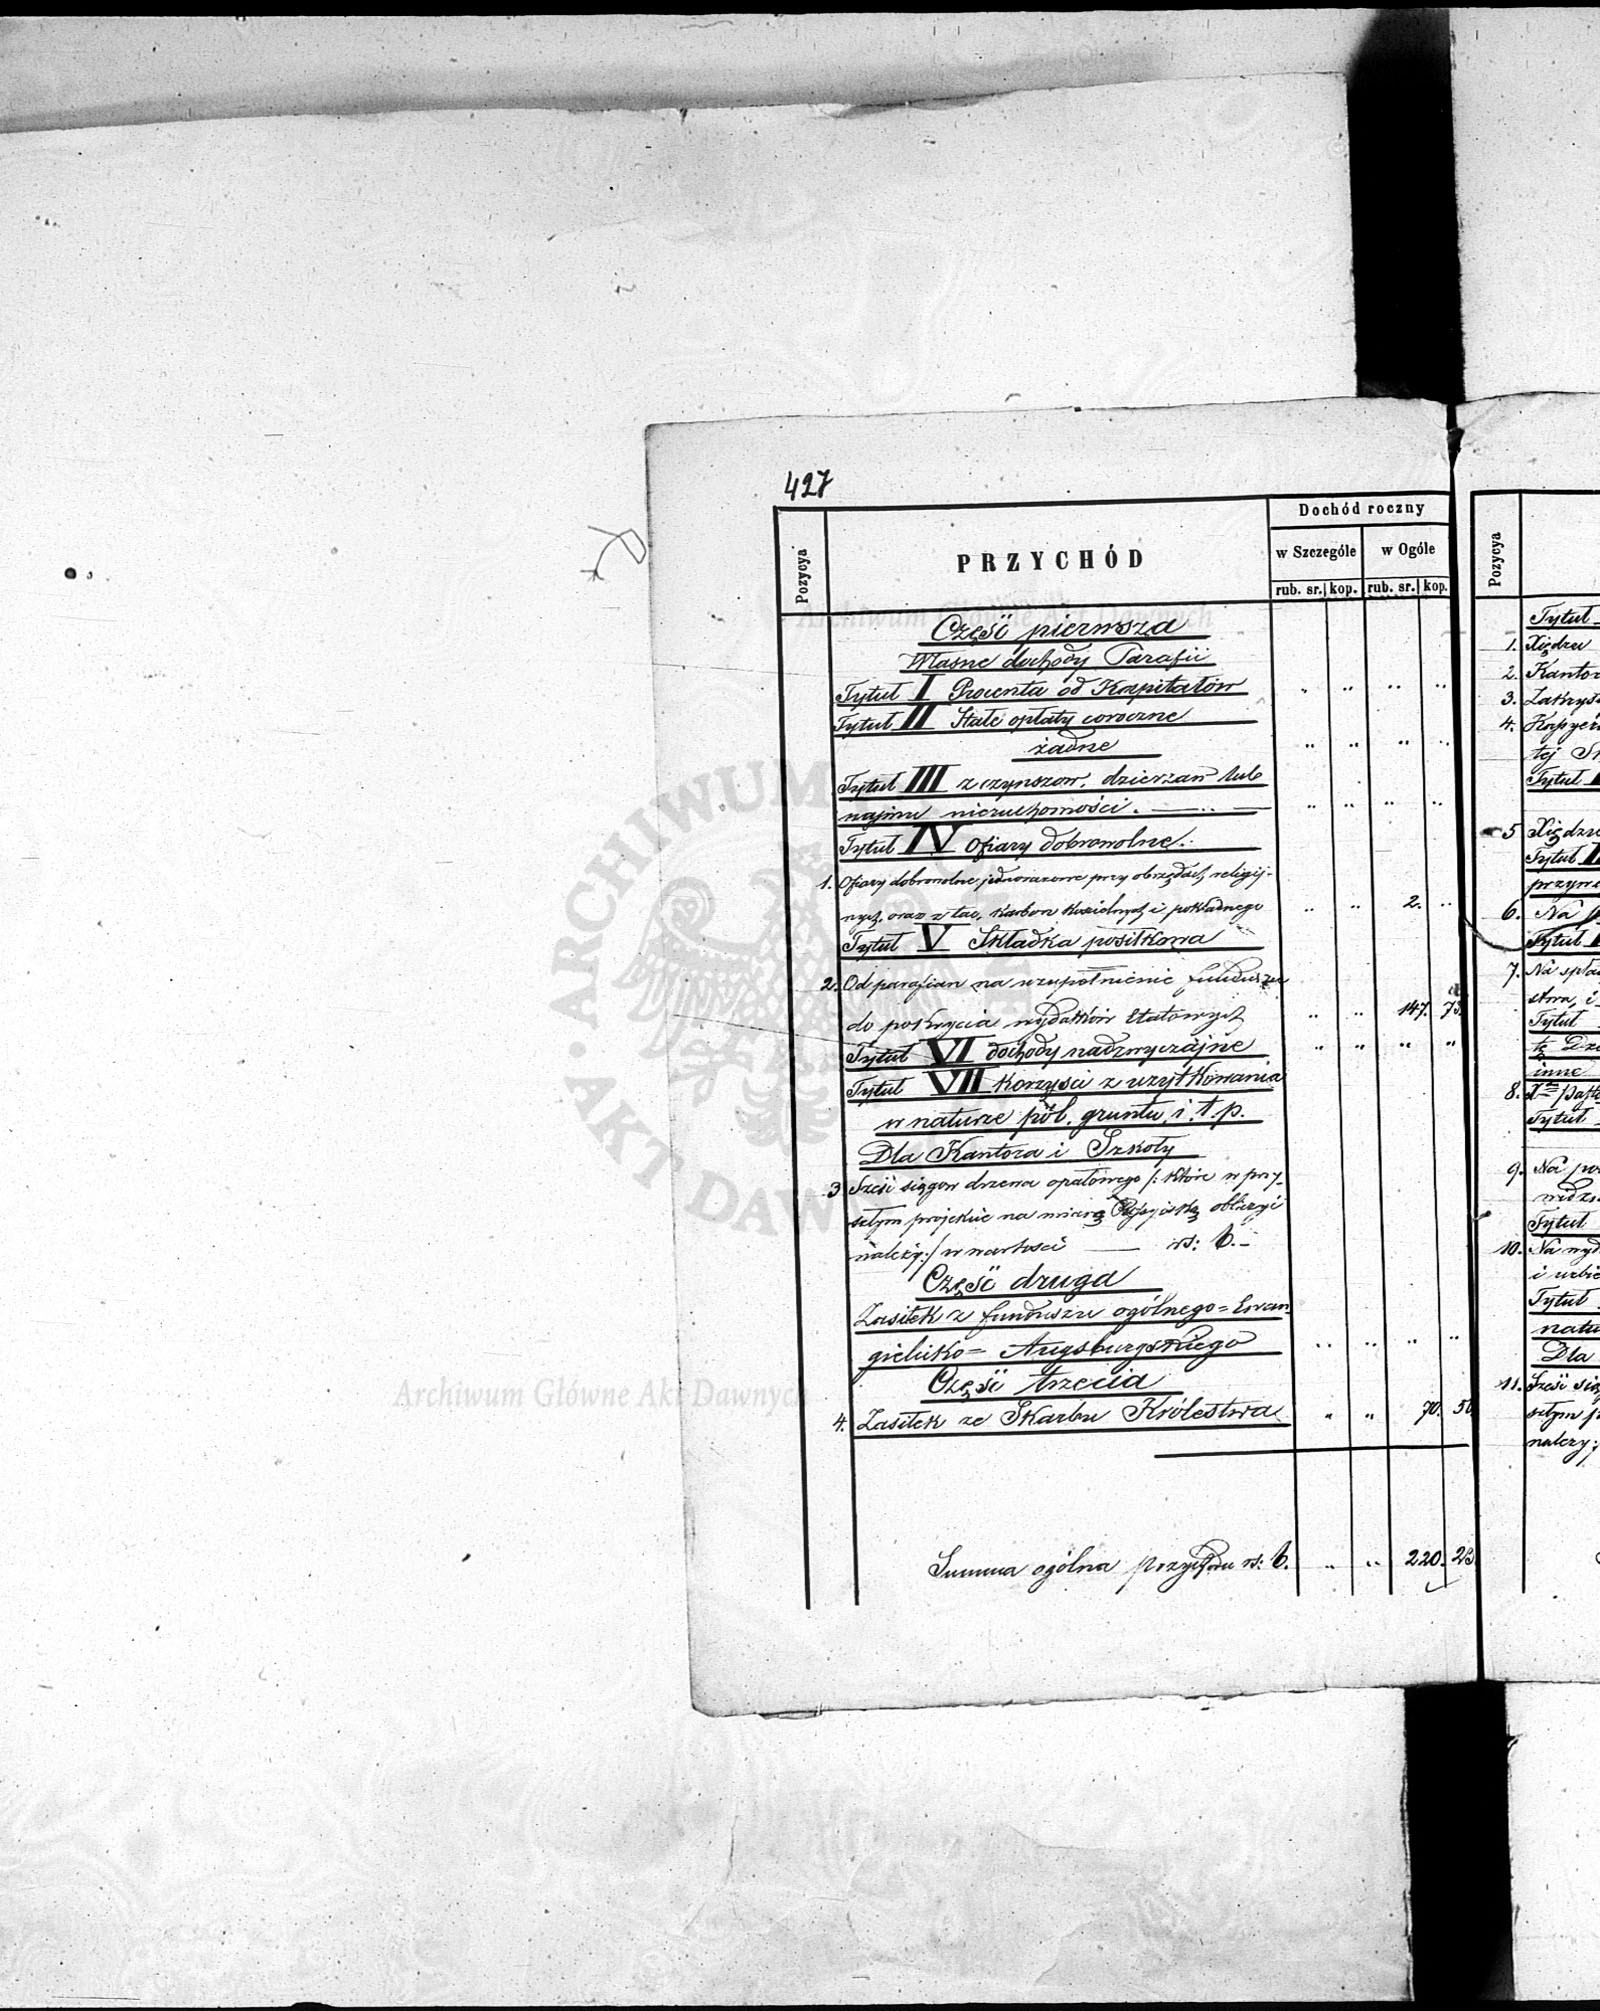 427
Pozycya
PRZYCHÓD
Dochód roczny
w Szczególe
w Ogóle
rub. sr. kop. rub. sr. kop.
Część pierwsza
Własne dochody Parafii
Tytuł I Procenta od Kapitałów
Tytuł II Stałe opłaty coroczne
żadne
Tytuł III z czynszow, dzierzaw lub
najmu nieruchomości.
Tytuł IV Ofiary dobrowolne.
1. Ofiary dobrowolne jednorazowe przy obrzędach religij-
nych, oraz z tac, Karbon Kościelnych i pokładnego 2.
Tytuł V Składka posiłkowa
2. Od parafian na uzupełnienie funduszu
do pokrycia wydatków Etatowych 147. 73
Tytuł VI dochody nadzwyczajne
Tytuł VII Korzyści z uzytkowania
w naturze pól, gruntu, i. t. p.
Dla Kantora i Szkoły
3 Sześć sięgow drzewa opałowego /: które w przy-
szłym projekcie na miarę obliczyć
należy :/ w wartości rs:
Część druga
Zasiłek z funduszu ogólnego= Ewan
gielicko= Augsburgskiego
Część trzecia
4. Zasiłek ze Skarbu Królestwa 70. 50
Summa ogólna przychodu rs: 220. 23
Pozycya
Tytuł
1. Xiędzu
2. Kantor
3.
4.
tej
Tytuł
5 Xiędzu
Tytuł
6. Na
Tytuł
7. Na
Tytuł
inne
8.
Tytuł
9. Na
Tytuł
10. Na
i
Tytuł
Dla
11. Sześć
szłym
należy:
Archiwum Główne Akt Dawnych
Archiwum Główne Akt Dawnych
ARCHIWUM
AKT DAW